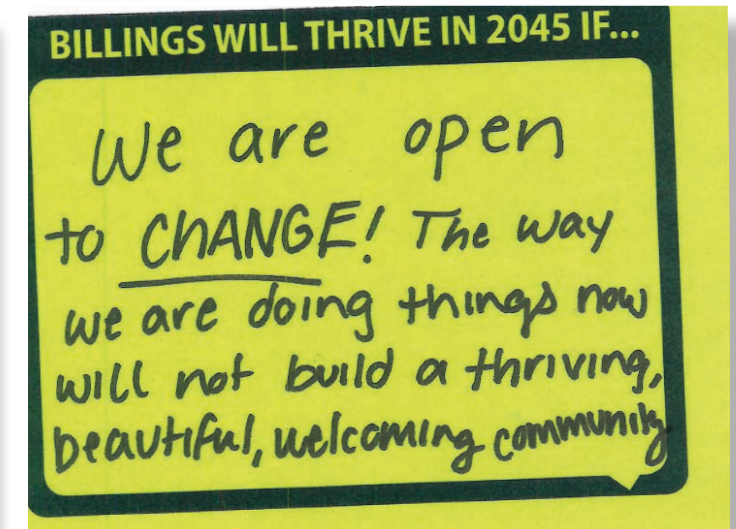 BILLINGS WILL THRIVE IN 2045 IF...
We are open
to CHANGE! The way
we are doing things now
will not build a thriving,
beautiful, welcoming community